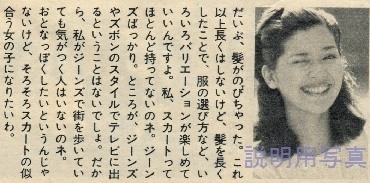 だいぶ、髪がのびちゃった。これ
以上長くはしないけど、髪を長く
したことで、服の選び方など、い
ろいろバリエーションが楽しめて
いいんですよ。私、スカートって
ほとんど持ってないのネ。ジーン
ズばっかり。ところが、ジーンズ
やズボンのスタイルでテレビに出
るということはないでしょ。だか
ら、私がジーンズで街を歩いてい
ても気がつく人はいないのネ。
おとなっぽくしたいというんじゃ
ないけど、そろそろスカートの似
合う女の子になりたいわ。
説明用写真